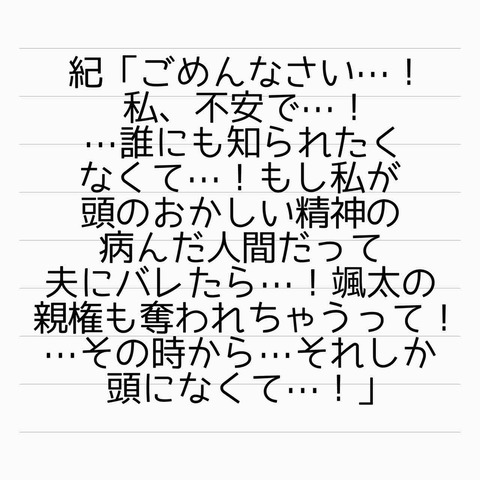 紀「ごめんなさい…！
私、不安で…！
…誰にも知られたく
なくて…！もし私が
頭のおかしい精神の
病んだ人間だって
夫にバレたら…！颯太の
親権も奪われちゃうって！
…その時から…それしか
頭になくて…！」